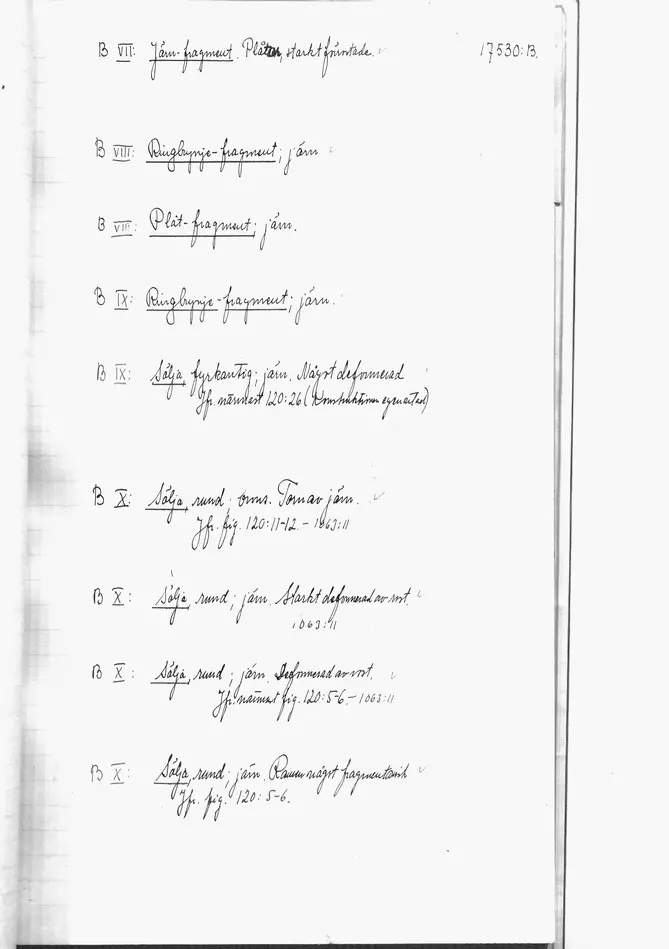 B VII: Järn-fragment. Plåtar, starkt förrostade. 17530:B.
B VIII: Ringbrynje-fragment; järn
B VIII: Plåt-fragment; järn.
B IX: Ringbrynje-fragment; järn.
B IX: Sölja, fyrkantig; järn. Något deformerad
Jfr. närmast 120:26 (Konstruktionen egenartad)
B X: Sölja, rund; brons. Torn av järn.
Jfr. fig. 120:11-12. – 1063:11
B X: Sölja, rund; järn. Starkt deformerad av rost.
1063:11
B X: Sölja, rund; järn. Deformerad av rost.
Jfr. närmast fig. 120:5-6. – 1063:11
B X: Sölja, rund; järn. Ramen något fragmentarisk
Jfr. fig. 120:5-6.